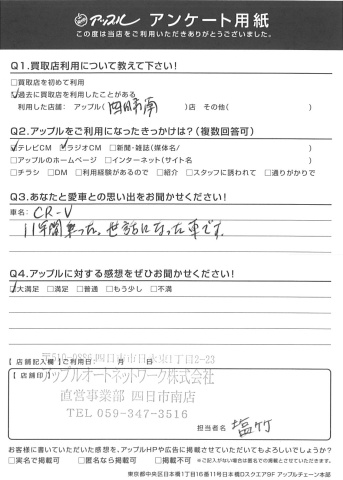 アップル アンケート用紙
この度は当店をご利用いただきありがとうございました。
Q1.買取店利用について教えて下さい!
□買取店を初めて利用
☑過去に買取店を利用したことがある
利用した店舗： アップル( 四日市南 )店 その他( )
Q2.アップルをご利用になったきっかけは?(複数回答可)
☑テレビCM ☑ラジオCM □新聞・雑誌(媒体名/ )
□アップルのホームページ □インターネット(サイト名 )
□チラシ □DM □利用経験があるので □紹介 □スタッフに誘われて □通りがかりで
Q3.あなたと愛車との思い出をお聞かせください!
車名： CR-V
11年間乗った。世話になった車です。
Q4.アップルに対する感想をぜひお聞かせください!
☑大満足 □満足 □普通 □もう少し □不満
【店舗記入欄】ご利用日： 月 日
〒510-0886 四日市市日永東1丁目2-23
【店舗印】
アップルオートネットワーク株式会社
直営事業部 四日市南店
TEL 059-347-3516
担当者名 塩竹
お客様に書いていただいた感想を、アップルHPや広告に掲載させていただいてもよろしいでしょうか?
□実名で掲載可 □匿名なら掲載可 □掲載不可 ※ご記入がない場合は匿名での掲載とさせていただきます。
東京都中央区日本橋1丁目16番11号日本橋Dスクエア9F アップルチェーン本部